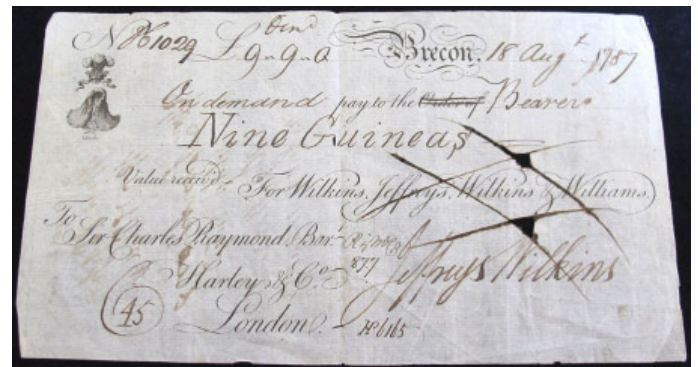 No H1029 £9-9-0 Brecon. 18 Augt 1787
On demand pay to the Order of Bearer
Nine Guineas
Value received. For Wilkins, Jeffreys, Wilkins & Williams,
To
Sir Charles Raymond Bart
Harley & Co. 877 Jeffreys Wilkins
45
London. H6165